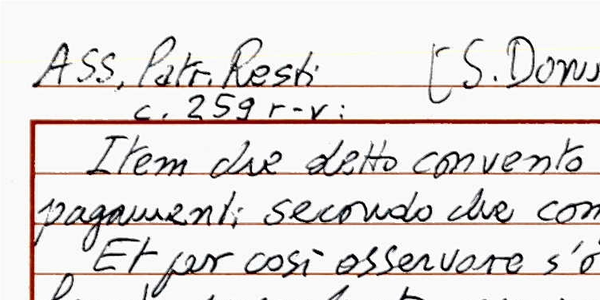 ASS, Patr. Resti [S.
c. 259 r-v:
Item che detto convento
pagamenti secondo che
Et per così osservare s'